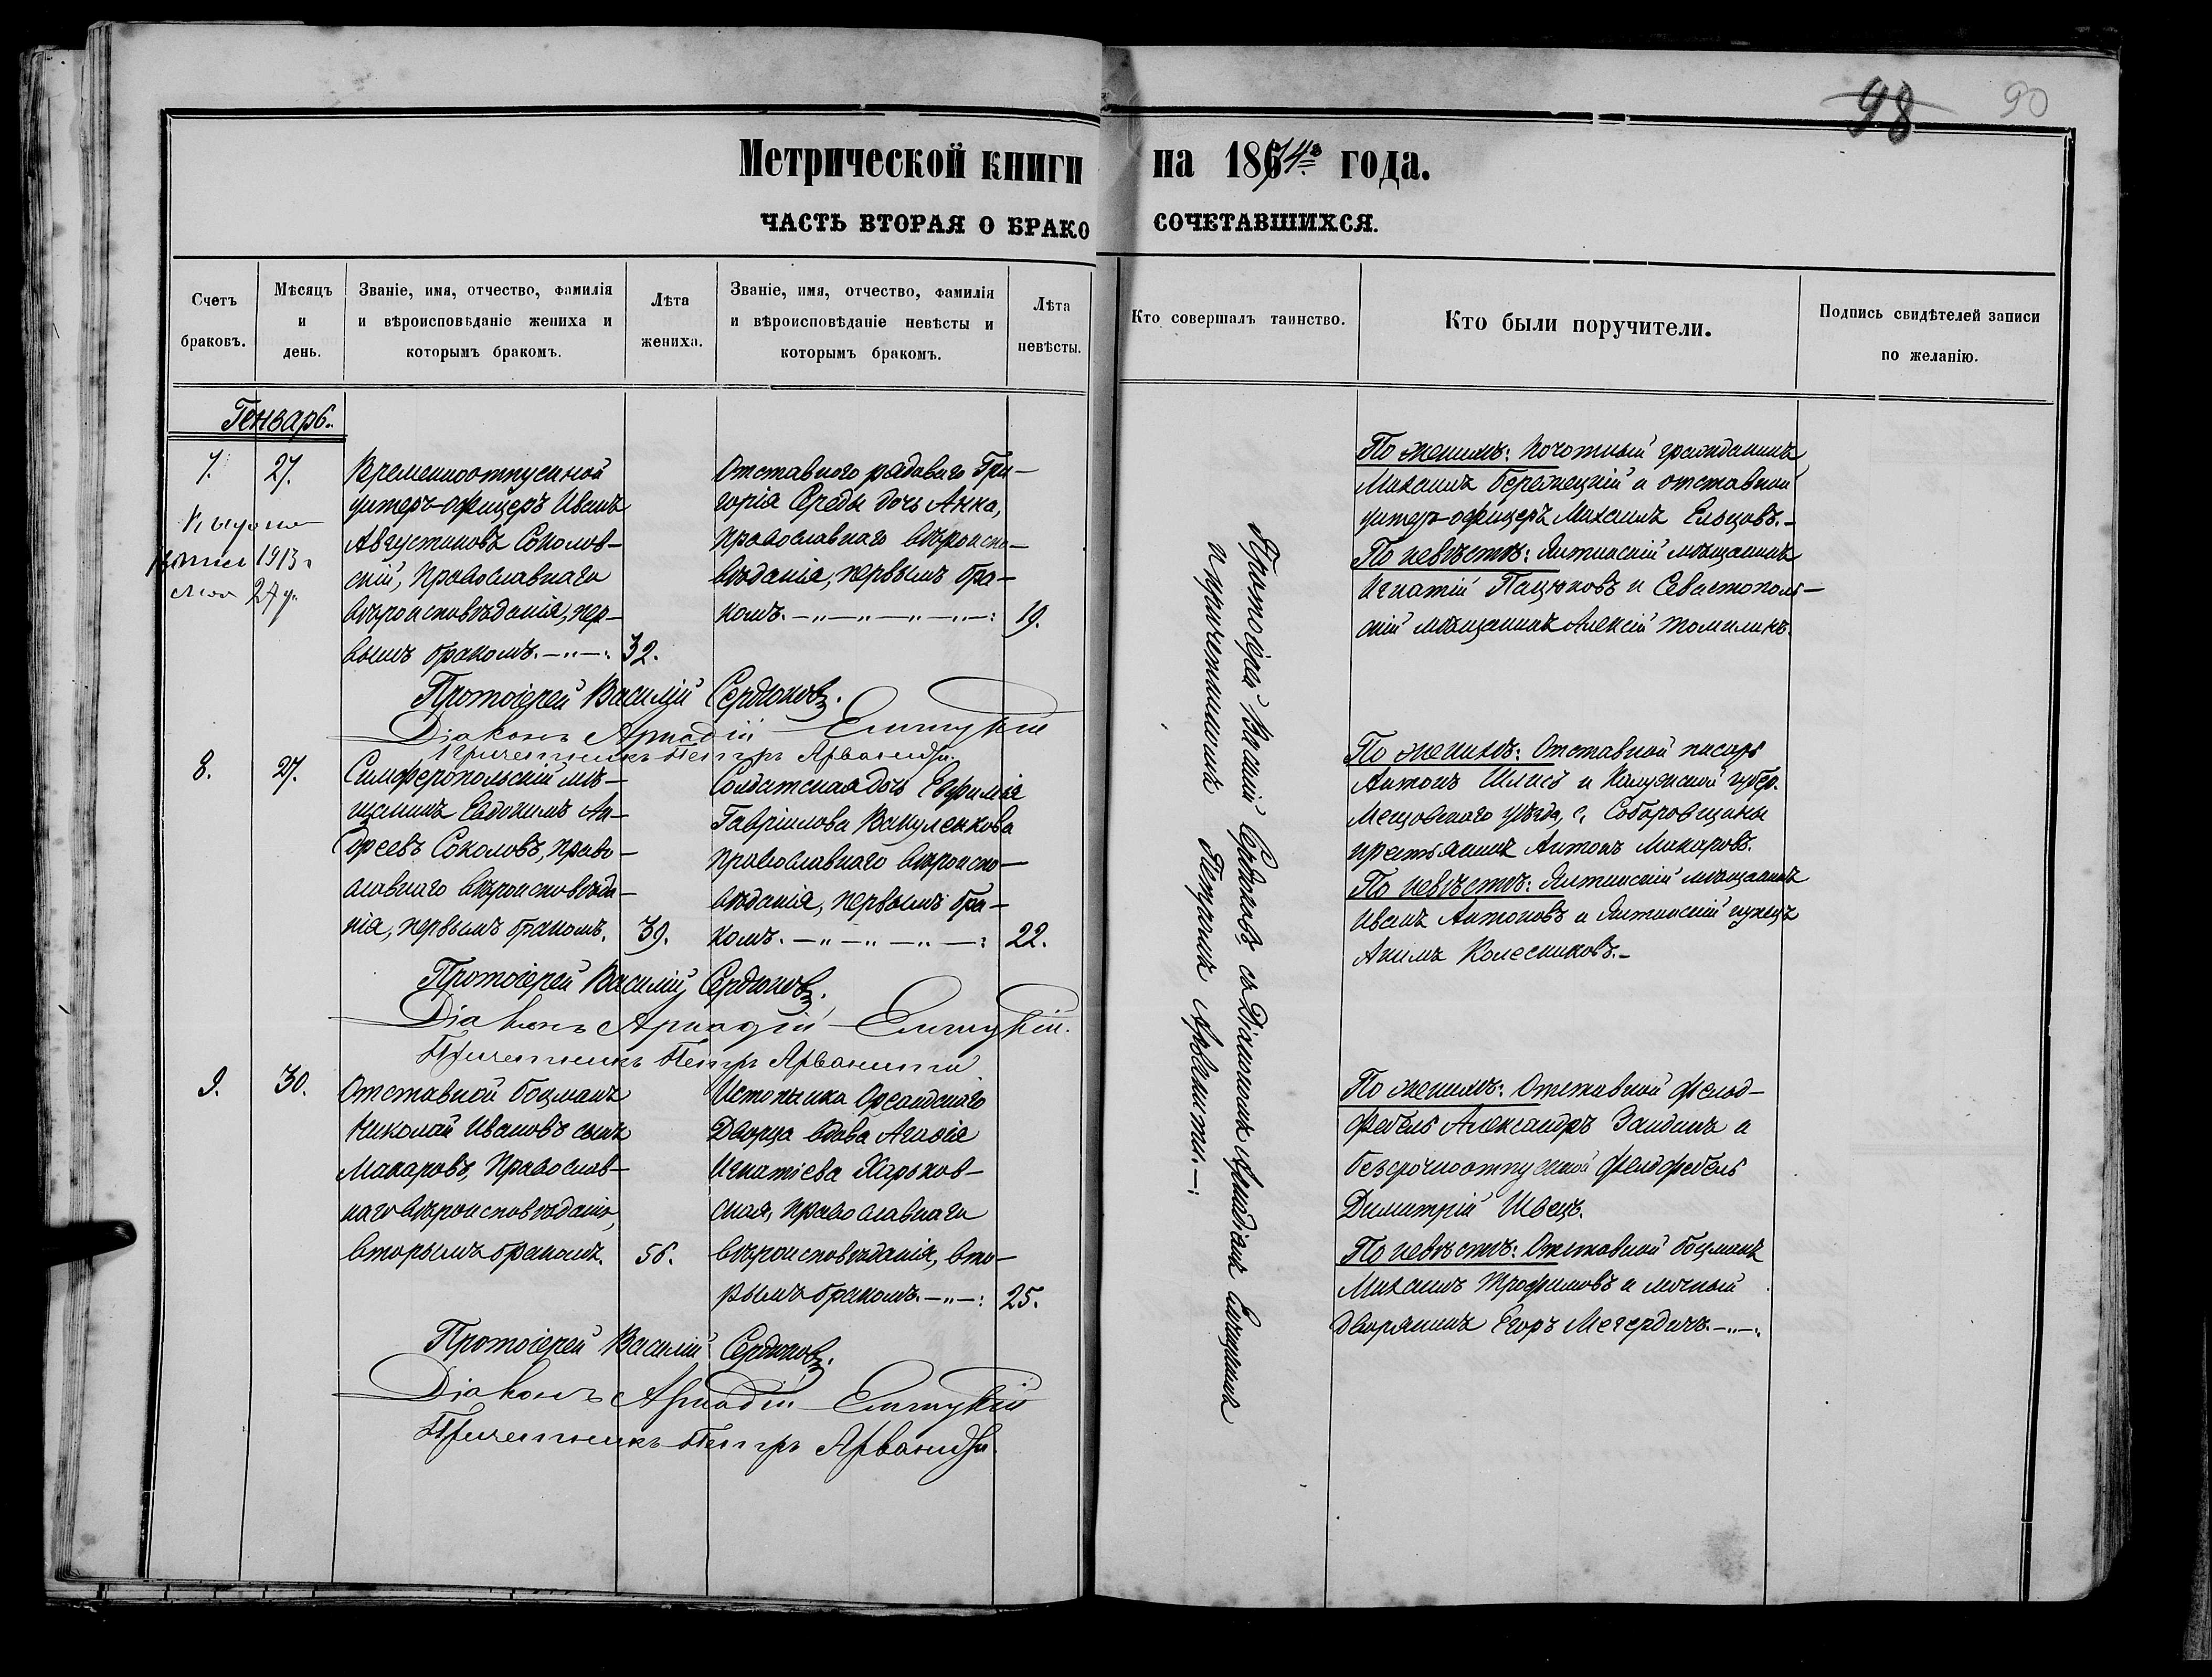 98 90
Метрической книги на 1874го года.
ЧАСТЬ ВТОРАЯ О БРАКОСОЧЕТАВШИХСЯ.
Счетъ браковъ.
Мѣсяцъ и день.
Званіе, имя, отчество, фамилія и вѣроисповѣданіе жениха и которымъ бракомъ.
Лѣта жениха.
Званіе, имя, отчество, фамилія и вѣроисповѣданіе невѣсты и которымъ бракомъ.
Лѣта невѣсты.
Кто совершалъ таинство.
Кто были поручители.
Подпись свидѣтелей записи по желанію.
Генварь.
7. 27.
1913 г.
27 д.
Временноотпускной
унтеръ-офицеръ Иванъ
Августиновъ Соколов-
скій, Православнаго
вѣроисповѣданія, пер-
вымъ бракомъ. 32.
Отставного рядоваго Гри-
горія Среды дочь Анна,
Православнаго вѣроиспо-
вѣданія, первымъ бра-
комъ. 19.
По женихѣ: Почотный гражданинъ
Михаилъ Бережецкій и отставной
унтер-офицеръ Михаилъ Ельцовъ.
По невѣстѣ: Ялтинскій мѣщанинъ
Игнатій Пацюковъ и Севастополь-
скій мѣщанинъ Алексій Томилинъ.
Протоіерей Василій Сердюковъ.
Діаконъ Аркадій
Причетникъ Петръ Арваниди.
8. 27.
Симферопольскій мѣ-
щанинъ Евдокимъ Ан-
дреевъ Соколовъ, право-
славнаго вѣроисповѣда-
нія, первымъ бракомъ. 39.
Солдатская дочь Евфимія
Гавріилова Вакуленкова
православнаго вѣроиспо-
вѣданія, первымъ бра-
комъ. 22.
По женихѣ: Отставной писарь
Антонъ и Калужской губер.
Мещовскаго уѣзда, с. Собаровщины
крестьянинъ Антонъ Макаровъ.
По невѣстѣ: Ялтинскій мѣщанинъ
Иванъ Антоновъ и Ялтинскій купецъ
Акимъ Колесниковъ.
Протоіерей Василій Сердюковъ.
Діаконъ Аркадій
Причетникъ Петръ Арванити
9. 30.
Отставной боцманъ
Николай Ивановъ сынъ
Макаровъ, Православ-
наго вѣроисповѣданія,
вторымъ бракомъ. 56.
Истопника Ореандскаго
Дворца вдова Агафія
Игнатіева Харьков-
ская, православнаго
вѣроисповѣданія, вто-
рымъ бракомъ. 25.
По женихѣ: Отставной фельд-
фебель Александръ и
безсрочноотпускной фельдфебель
Димитрій Швецъ.
По невѣстѣ: Отставной боцманъ
Михаилъ Трофимовъ и личный
дворянинъ Егоръ Мегердичъ.
Протоіерей Василій Сердюковъ.
Діаконъ Аркадій
Причетникъ Петръ Арваниди.
Протоіерей Василій Сердюковъ съ Діакономъ Аркадіемъ
и причетникомъ Петромъ Арванити.